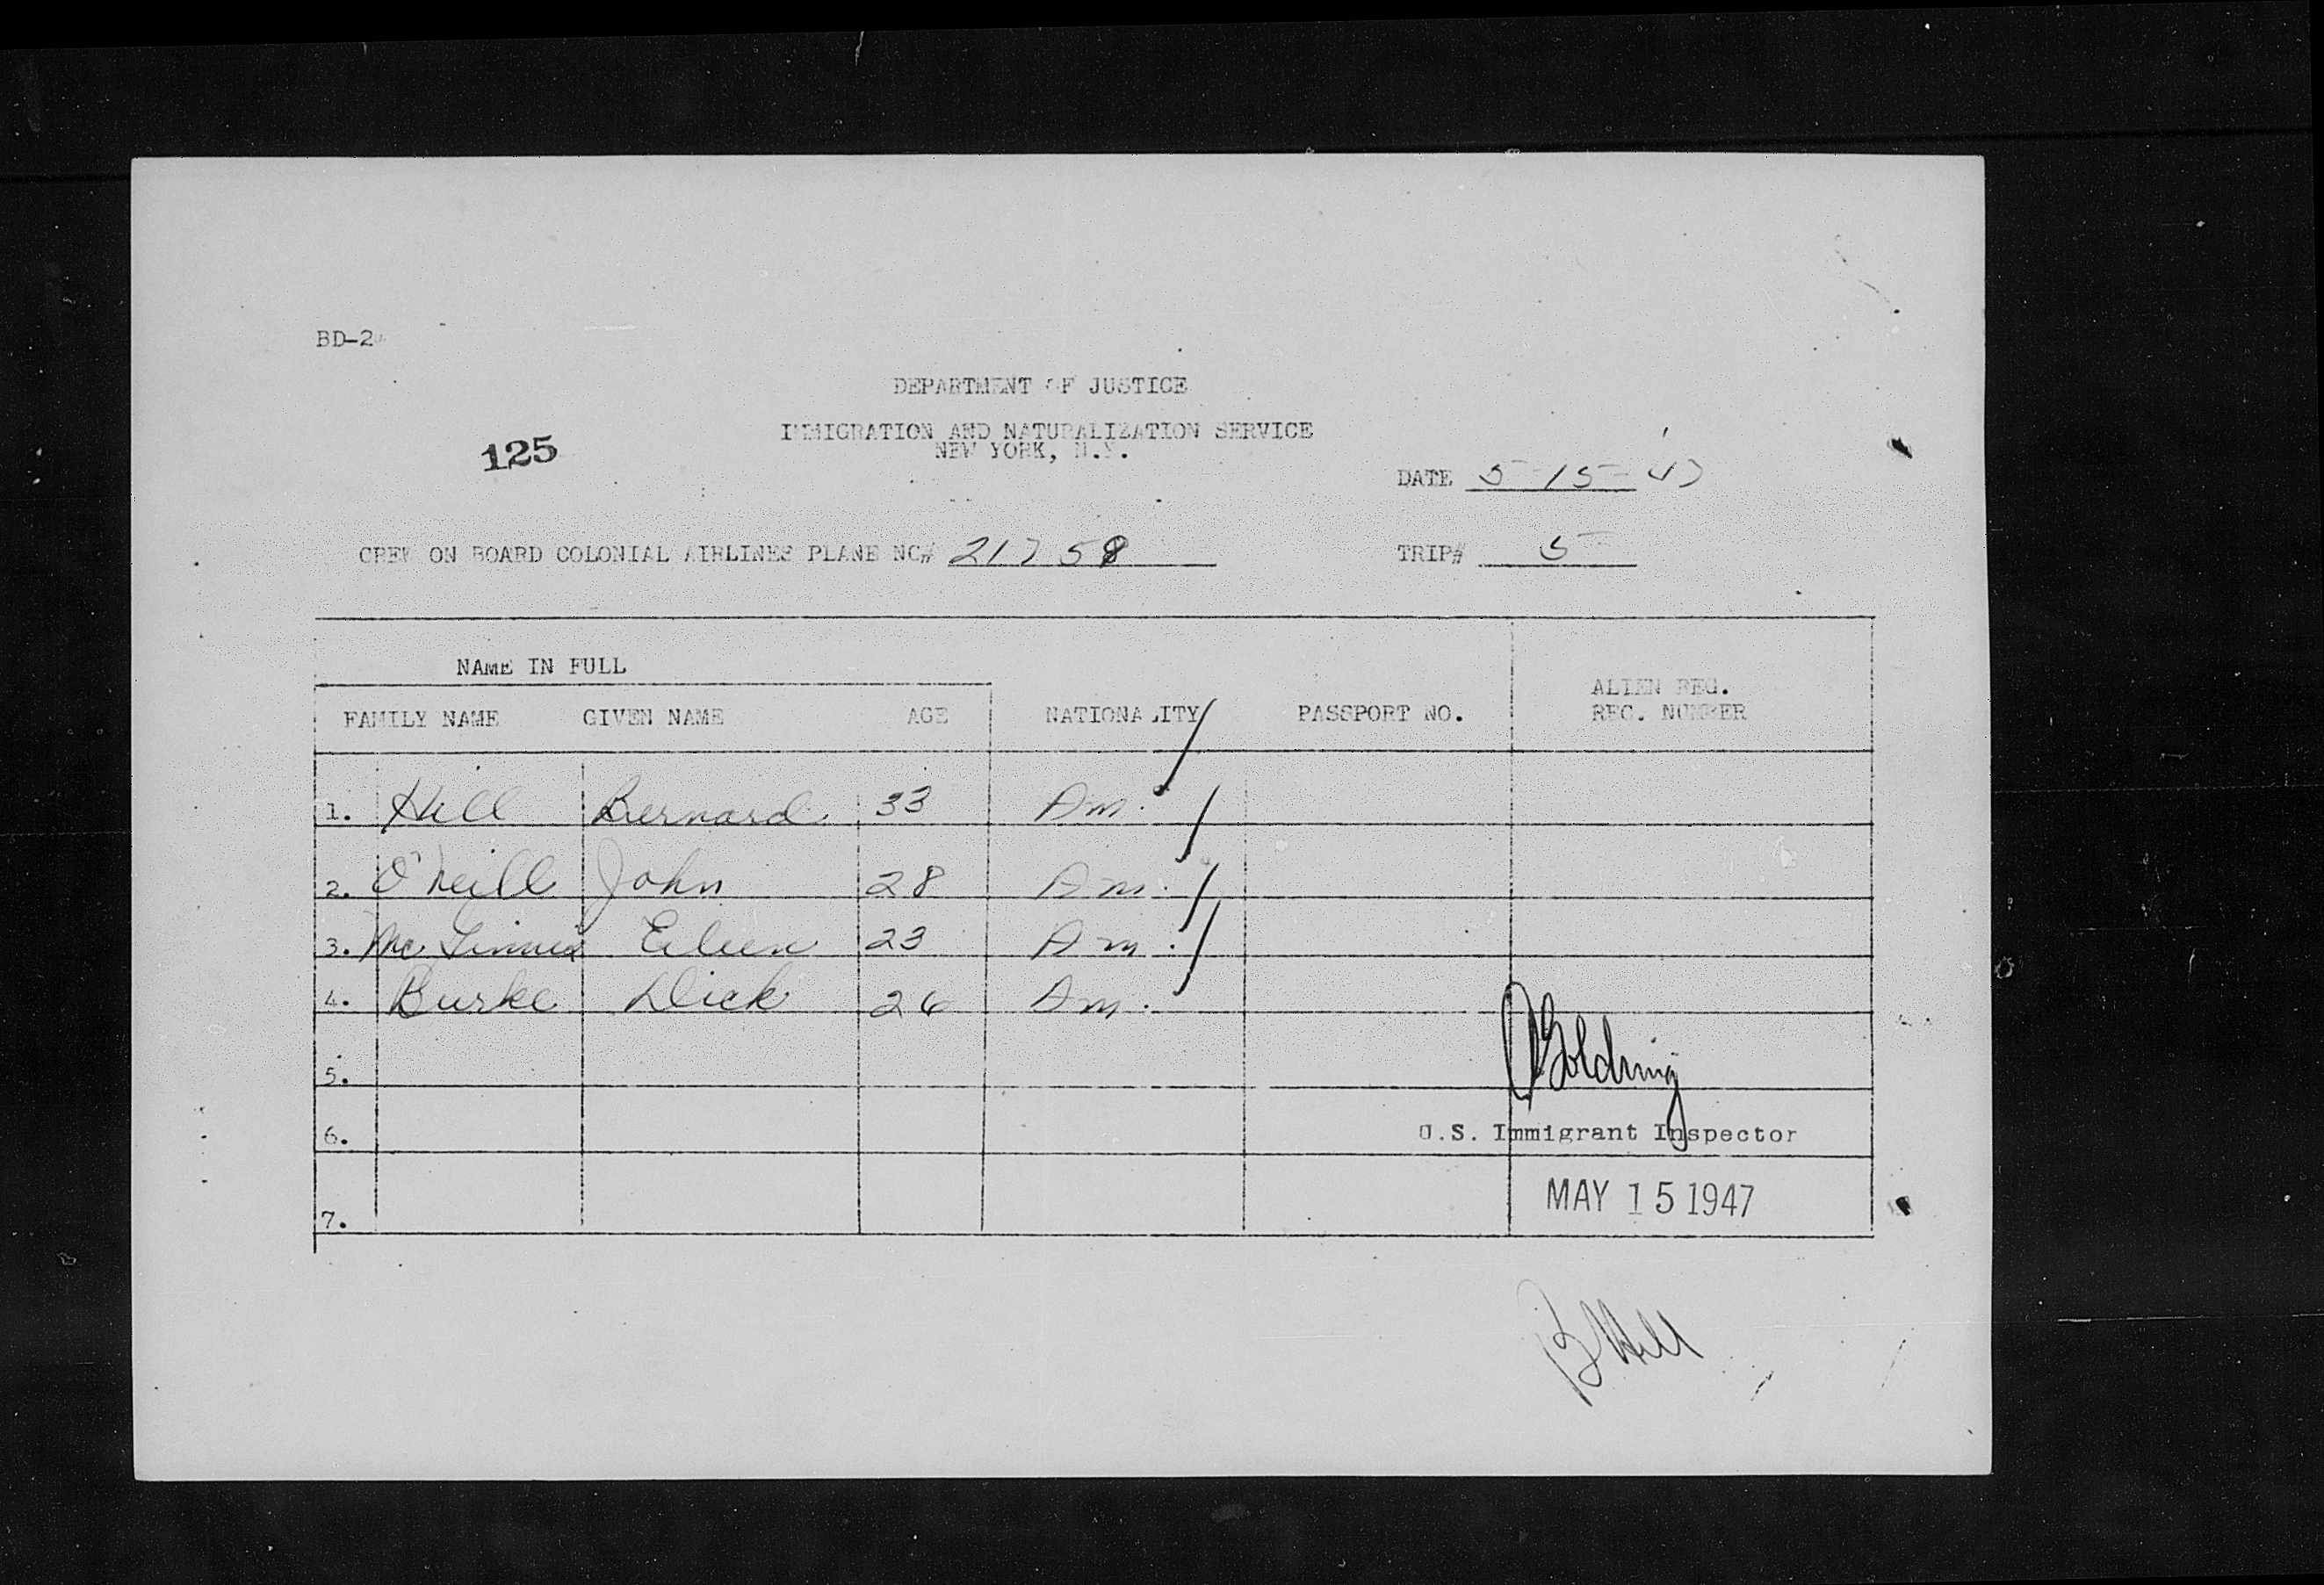 BD-2
DEPARTMENT OF JUSTICE
IMMIGRATION AND NATURALIZATION SERVICE
125
NEW YORK, N.Y.
DATE 5-15-47
CREW ON BOARD COLONIAL AIRLINES PLANE NC# 21758
TRIP# 5
NAME IN FULL
FAMILY NAME GIVEN NAME AGE NATIONALITY PASSPORT NO. ALIEN REG. REC. NUMBER
1. Hill Bernard 33 Am.
2. O'Neill John 28 Am.
3. Mc Eileen 23 Am.
4. Burke Dick 26 Am.
5.
Goldring
6.
U.S. Immigrant Inspector
MAY 15 1947
7.
B Hill